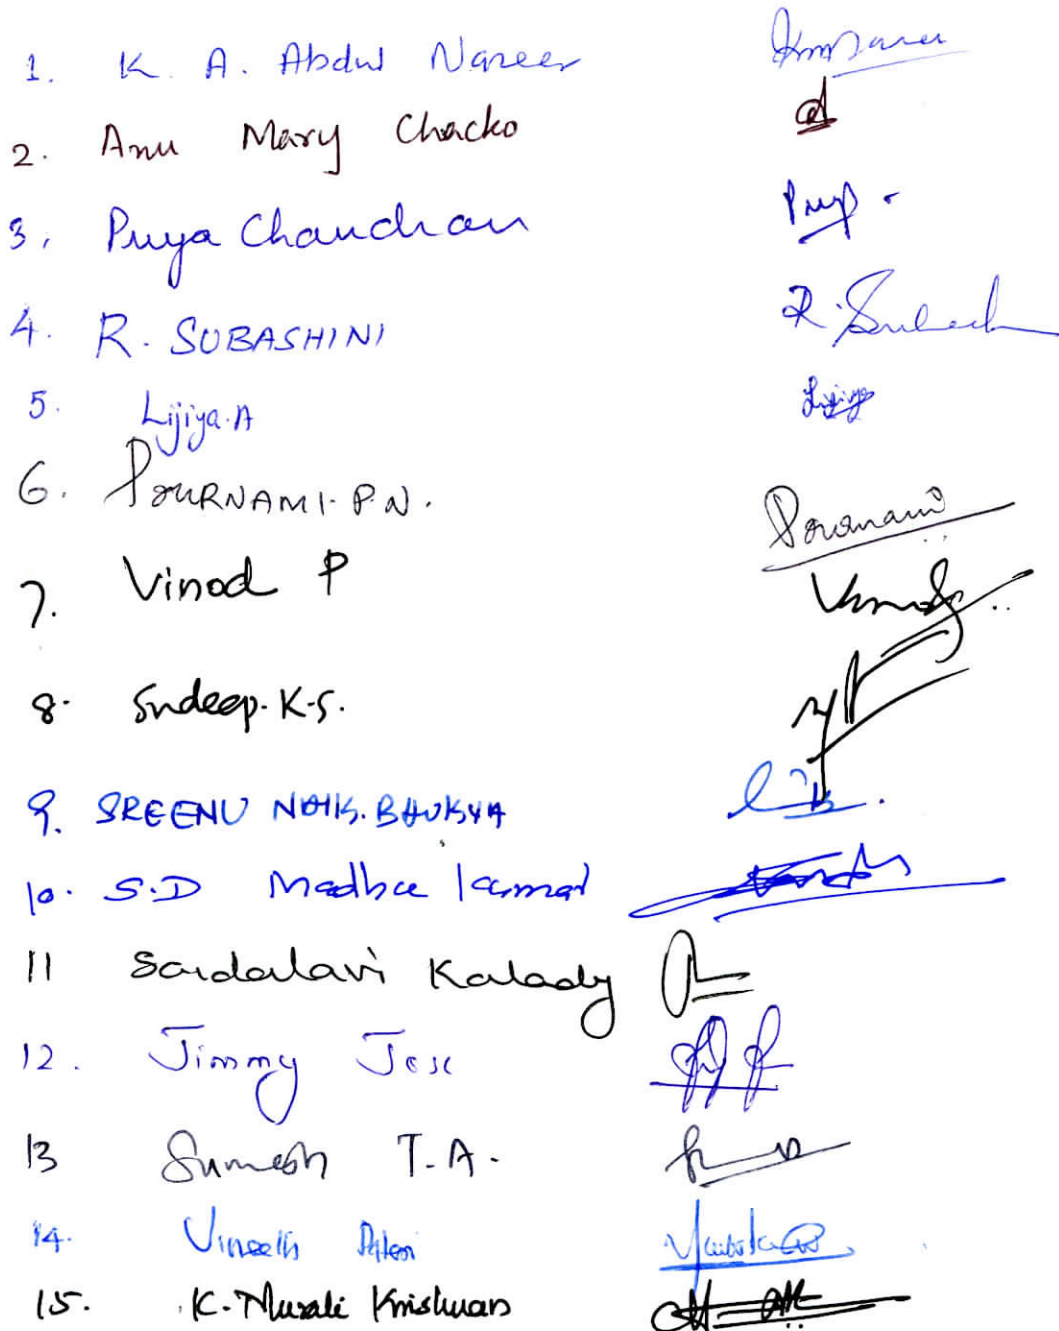 1. K. A. Abdul Nazeer
2. Anu Mary Chacko
3. Priya Chandran Priya
4. R. SUBASHINI R.
5. Lijiya.A Lijiya
6. POURNAMI.P.N. Pournami
7. Vinod P Vinod
8. Sudeep.K.S.
9. SREENU NAIK.BHUKYA
10. S.D Madhu Kumar
11 Saidalavi Kalady
12. Jimmy Jose
13 Sumesh T.A.
14. Vineeth
15. K. Murali Krishnan